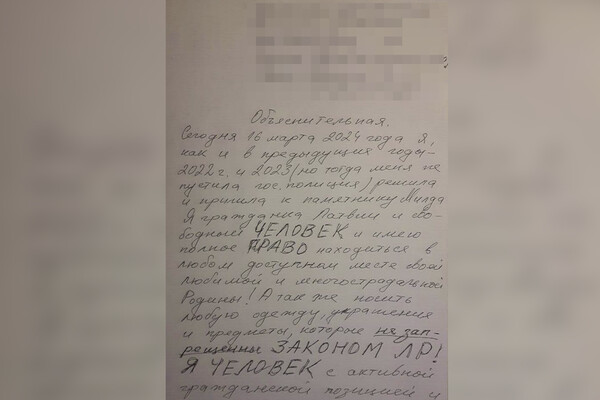 Объяснительная.
Сегодня 16 марта 2024 года я,
как и в предыдущие годы –
2022 г. и 2023 (но тогда меня не
пустила гос. полиция) решила
и пришла к памятнику Милда
Я гражданка Латвии и сво-
бодный ЧЕЛОВЕК и имею
полное ПРАВО находиться в
любом доступном месте своей
любимой и многострадальной
Родины! А так же носить
любую одежду, украшения
и предметы, которые не зап-
рещенны ЗАКОНОМ ЛР!
Я ЧЕЛОВЕК с активной
гражданской позицией и